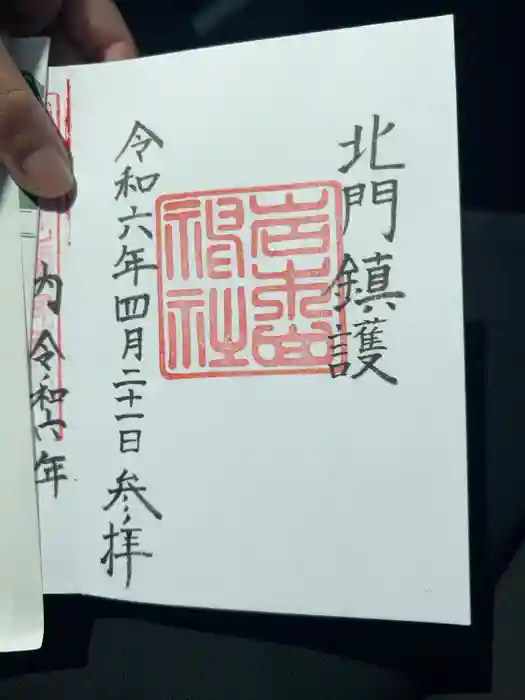 北門鎮護
岩木山
神社
令和六年四月二十一日 参拝
内 令和六年